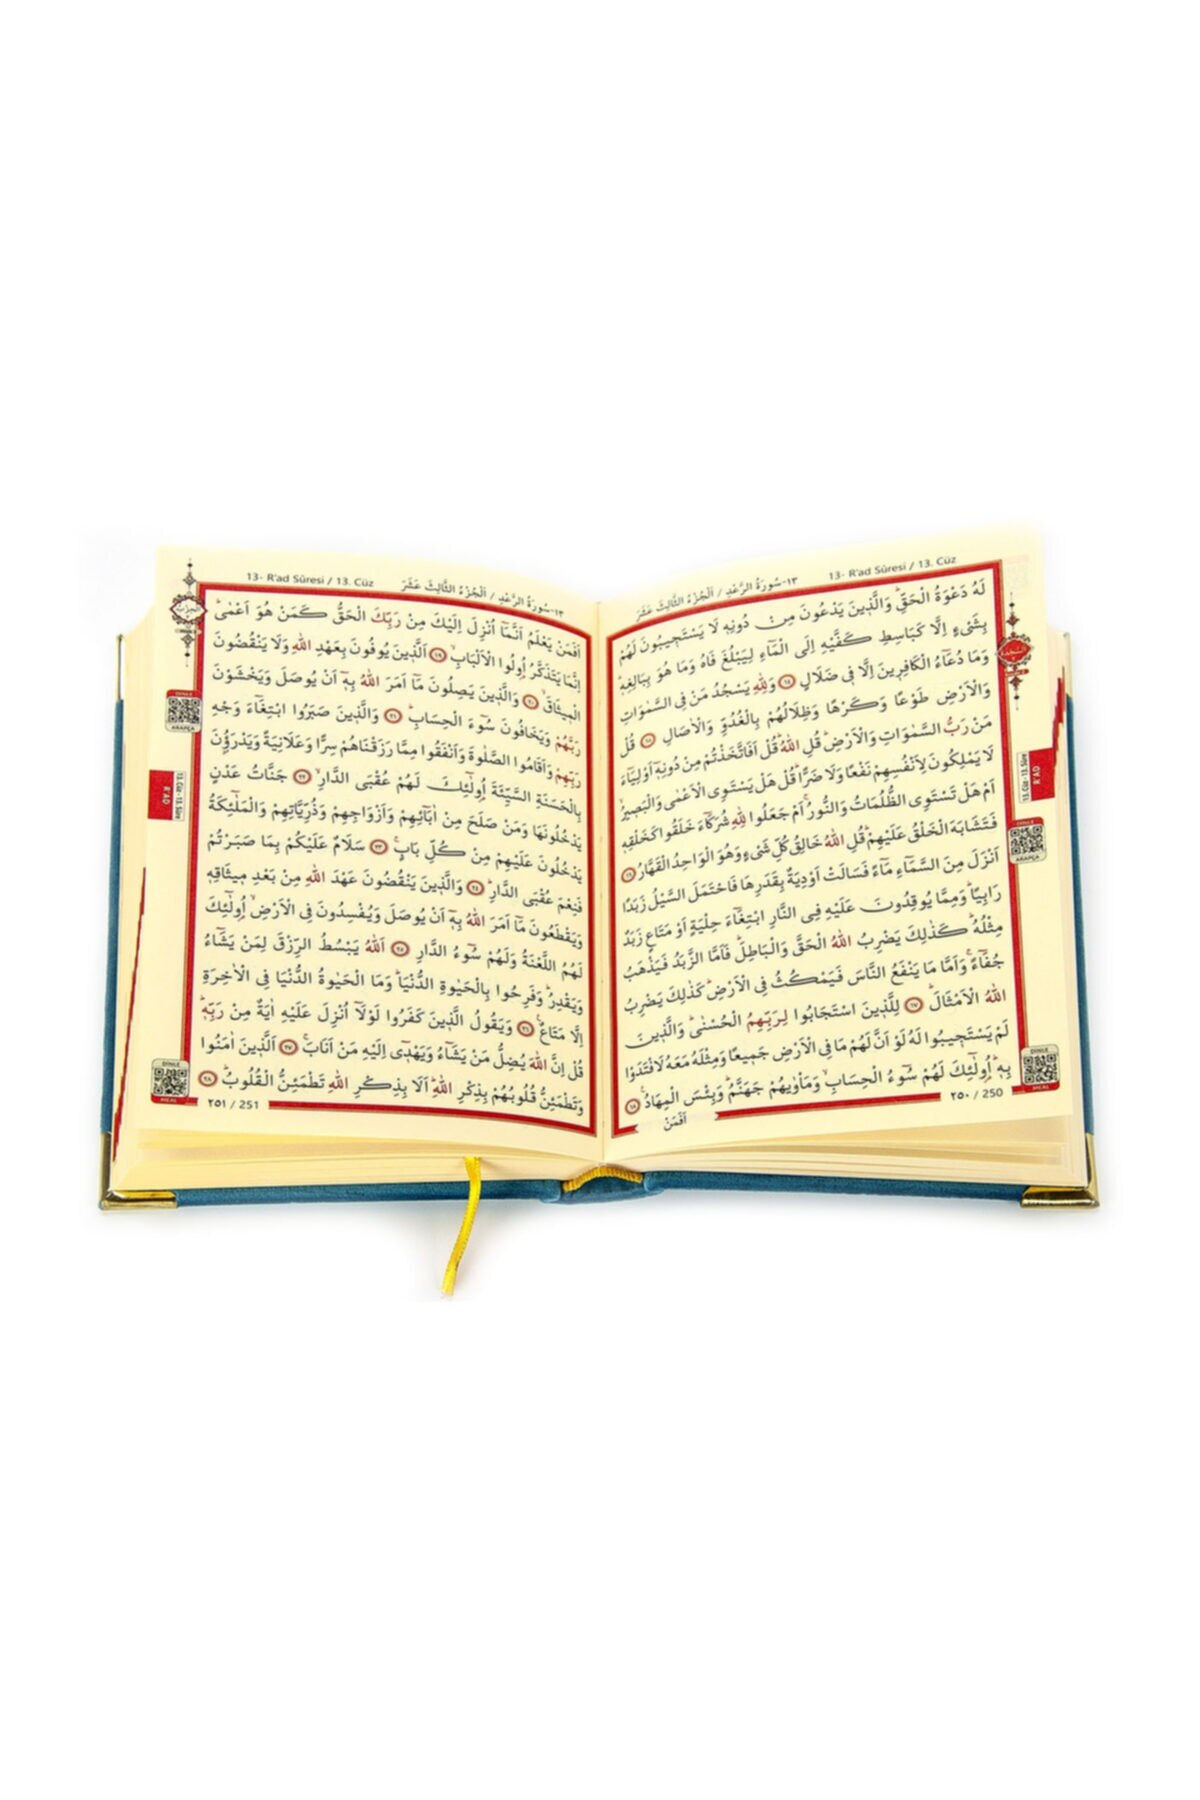 13- R'ad Sûresi / 13. Cüz
١٣-سُورَةُ الرَّعْدِ / اَلْجُزْءُ الثَّالِثَ عَشَرَ
لَهُ دَعْوَةُ الْحَقِّۜ وَالَّذ۪ينَ يَدْعُونَ مِنْ دُونِه۪ لَا يَسْتَج۪يبُونَ لَهُمْ
بِشَيْءٍ اِلَّا كَبَاسِطِ كَفَّيْهِ اِلَى الْمَٓاءِ لِيَبْلُغَ فَاهُ وَمَا هُوَ بِبَالِغِه۪ۜ
وَمَا دُعَٓاءُ الْكَافِر۪ينَ اِلَّا ف۪ي ضَلَالٍ ﴿١٤﴾ وَلِلّٰهِ يَسْجُدُ مَنْ فِي السَّمٰوَاتِ
وَالْاَرْضِ طَوْعًا وَكَرْهًا وَظِلَالُهُمْ بِالْغُدُوِّ وَالْاٰصَالِ ﴿١٥﴾ قُلْ
مَنْ رَبُّ السَّمٰوَاتِ وَالْاَرْضِۜ قُلِ اللّٰهُۜ قُلْ اَفَاتَّخَذْتُمْ مِنْ دُونِه۪ٓ اَوْلِيَٓاءَ
لَا يَمْلِكُونَ لِاَنْفُسِهِمْ نَفْعًا وَلَا ضَرًّاۜ قُلْ هَلْ يَسْتَوِي الْاَعْمٰى وَالْبَص۪يرُۙ
اَمْ هَلْ تَسْتَوِي الظُّلُمَاتُ وَالنُّورُۚ اَمْ جَعَلُوا لِلّٰهِ شُرَكَٓاءَ خَلَقُوا كَخَلْقِه۪
فَتَشَابَهَ الْخَلْقُ عَلَيْهِمْۜ قُلِ اللّٰهُ خَالِقُ كُلِّ شَيْءٍ وَهُوَ الْوَاحِدُ الْقَهَّارُ ﴿١٦﴾
اَنْزَلَ مِنَ السَّمَٓاءِ مَٓاءً فَسَالَتْ اَوْدِيَةٌ بِقَدَرِهَا فَاحْتَمَلَ السَّيْلُ زَبَدًا
رَابِيًاۜ وَمِمَّا يُوقِدُونَ عَلَيْهِ فِي النَّارِ ابْتِغَٓاءَ حِلْيَةٍ اَوْ مَتَاعٍ زَبَدٌ
مِثْلُهُۜ كَذٰلِكَ يَضْرِبُ اللّٰهُ الْحَقَّ وَالْبَاطِلَۜ فَاَمَّا الزَّبَدُ فَيَذْهَبُ
جُفَٓاءًۚ وَاَمَّا مَا يَنْفَعُ النَّاسَ فَيَمْكُثُ فِي الْاَرْضِۜ كَذٰلِكَ يَضْرِبُ
اللّٰهُ الْاَمْثَالَۜ ﴿١٧﴾ لِلَّذ۪ينَ اسْتَجَابُوا لِرَبِّهِمُ الْحُسْنٰىۜ وَالَّذ۪ينَ
لَمْ يَسْتَج۪يبُوا لَهُ لَوْ اَنَّ لَهُمْ مَا فِي الْاَرْضِ جَم۪يعًا وَمِثْلَهُ مَعَهُ لَافْتَدَوْا
بِه۪ۜ اُو۬لٰٓئِكَ لَهُمْ سُٓوءُ الْحِسَابِ وَمَأْوٰيهُمْ جَهَنَّمُۜ وَبِئْسَ الْمِهَادُ۟ ﴿١٨﴾
٢٥٠ / 250
اَفَمَنْ
DİNLE
ARAPÇA
13.Cüz-13.Sûre
R'AD
DİNLE
MEAL
13- R'ad Sûresi / 13. Cüz
١٣-سُورَةُ الرَّعْدِ / اَلْجُزْءُ الثَّالِثَ عَشَرَ
اَفَمَنْ يَعْلَمُ اَنَّمَٓا اُنْزِلَ اِلَيْكَ مِنْ رَبِّكَ الْحَقُّ كَمَنْ هُوَ اَعْمٰىۜ
اِنَّمَا يَتَذَكَّرُ اُو۬لُوا الْاَلْبَابِۙ ﴿١٩﴾ اَلَّذ۪ينَ يُوفُونَ بِعَهْدِ اللّٰهِ وَلَا يَنْقُضُونَ
الْم۪يثَاقَۙ ﴿٢٠﴾ وَالَّذ۪ينَ يَصِلُونَ مَٓا اَمَرَ اللّٰهُ بِه۪ٓ اَنْ يُوصَلَ وَيَخْشَوْنَ
رَبَّهُمْ وَيَخَافُونَ سُٓوءَ الْحِسَابِۜ ﴿٢١﴾ وَالَّذ۪ينَ صَبَرُوا ابْتِغَٓاءَ وَجْهِ
رَبِّهِمْ وَاَقَامُوا الصَّلٰوةَ وَاَنْفَقُوا مِمَّا رَزَقْنَاهُمْ سِرًّا وَعَلَانِيَةً وَيَدْرَؤُ۫نَ
بِالْحَسَنَةِ السَّيِّئَةَ اُو۬لٰٓئِكَ لَهُمْ عُقْبَى الدَّارِۙ ﴿٢٢﴾ جَنَّاتُ عَدْنٍ
يَدْخُلُونَهَا وَمَنْ صَلَحَ مِنْ اٰبَٓائِهِمْ وَاَزْوَاجِهِمْ وَذُرِّيَّاتِهِمْ وَالْمَلٰٓئِكَةُ
يَدْخُلُونَ عَلَيْهِمْ مِنْ كُلِّ بَابٍۚ ﴿٢٣﴾ سَلَامٌ عَلَيْكُمْ بِمَا صَبَرْتُمْ
فَنِعْمَ عُقْبَى الدَّارِۜ ﴿٢٤﴾ وَالَّذ۪ينَ يَنْقُضُونَ عَهْدَ اللّٰهِ مِنْ بَعْدِ م۪يثَاقِه۪
وَيَقْطَعُونَ مَٓا اَمَرَ اللّٰهُ بِه۪ٓ اَنْ يُوصَلَ وَيُفْسِدُونَ فِي الْاَرْضِۙ اُو۬لٰٓئِكَ
لَهُمُ اللَّعْنَةُ وَلَهُمْ سُٓوءُ الدَّارِ ﴿٢٥﴾ اَللّٰهُ يَبْسُطُ الرِّزْقَ لِمَنْ يَشَٓاءُ
وَيَقْدِرُۜ وَفَرِحُوا بِالْحَيٰوةِ الدُّنْيَاۜ وَمَا الْحَيٰوةُ الدُّنْيَا فِي الْاٰخِرَةِ
اِلَّا مَتَاعٌ۟ ﴿٢٦﴾ وَيَقُولُ الَّذ۪ينَ كَفَرُوا لَوْلَٓا اُنْزِلَ عَلَيْهِ اٰيَةٌ مِنْ رَبِّه۪ۜ
قُلْ اِنَّ اللّٰهَ يُضِلُّ مَنْ يَشَٓاءُ وَيَهْد۪ٓي اِلَيْهِ مَنْ اَنَابَۚ ﴿٢٧﴾ اَلَّذ۪ينَ اٰمَنُوا
وَتَطْمَئِنُّ قُلُوبُهُمْ بِذِكْرِ اللّٰهِۜ اَلَا بِذِكْرِ اللّٰهِ تَطْمَئِنُّ الْقُلُوبُۜ ﴿٢٨﴾
٢٥١ / 251
DİNLE
ARAPÇA
13.Cüz-13.Sûre
R'AD
DİNLE
MEAL